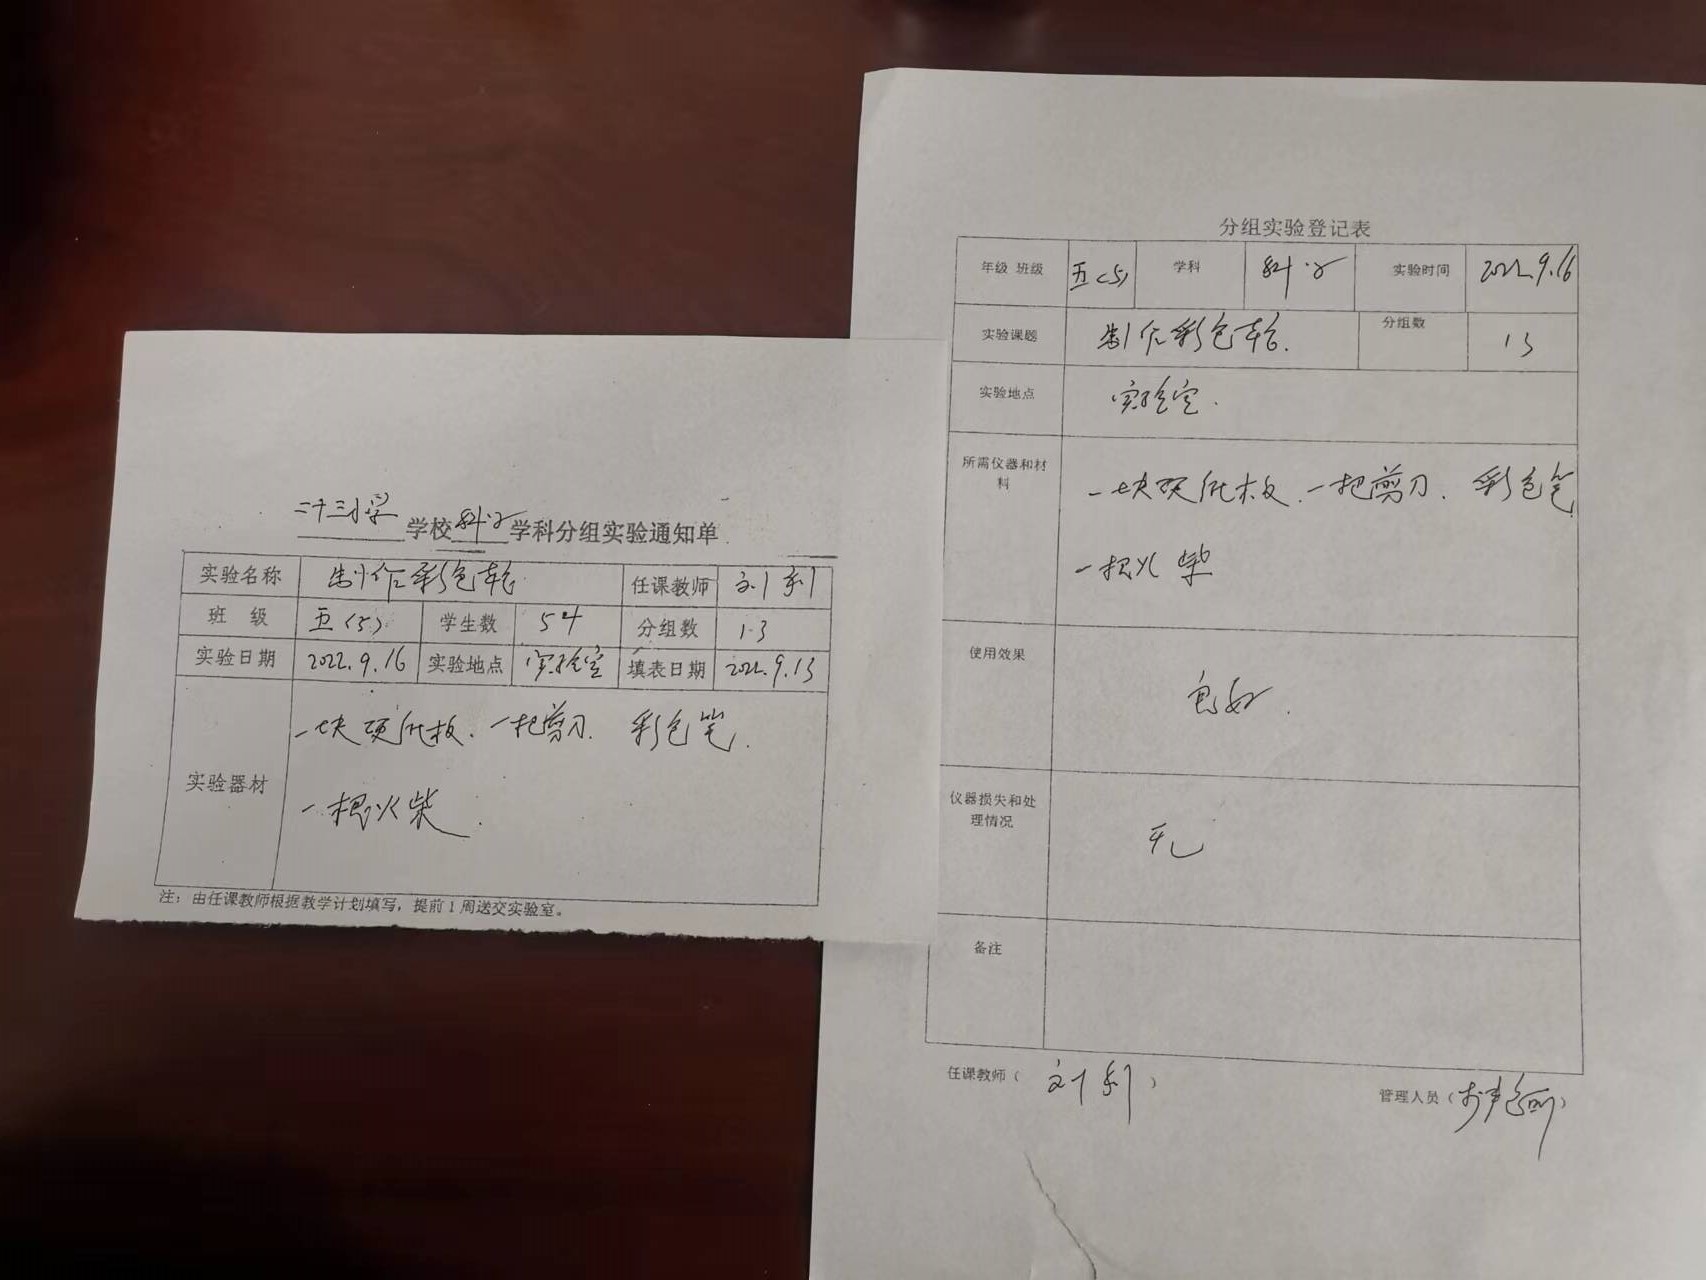 二十三小学学校科学学科分组实验通知单
实验名称 制作彩色轮 任课教师 刘利
班 级 五(5) 学生数 54 分组数 13
实验日期 2022.9.16 实验地点 实验室 填表日期 2022.9.13
实验器材 一块硬纸板、一把剪刀、彩色笔、
一根火柴.
注:由任课教师根据教学计划填写,提前1周送交实验室。
分组实验登记表
年级 班级 五(5) 学科 科学 实验时间 2022.9.16
实验课题 制作彩色轮. 分组数 13
实验地点 实验室.
所需仪器和材料 一块硬纸板、一把剪刀、彩色笔
一根火柴
使用效果 良好.
仪器损失和处理情况 无
备注
任课教师( 刘利 ) 管理人员( )